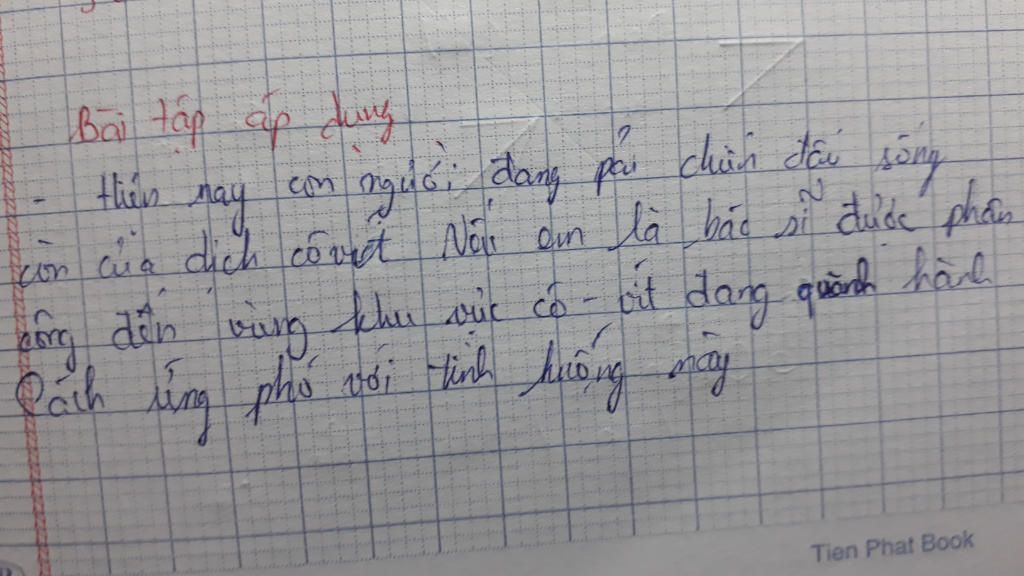 Bài tập áp dụng
- Hiện nay con người đang phải chiến đấu sống
còn của dịch côvit Nếu em là bác sĩ được phân
công đến vùng khu vực cô-vit đang hành
Cách ứng phó với tình huống này
Tien Phat Book